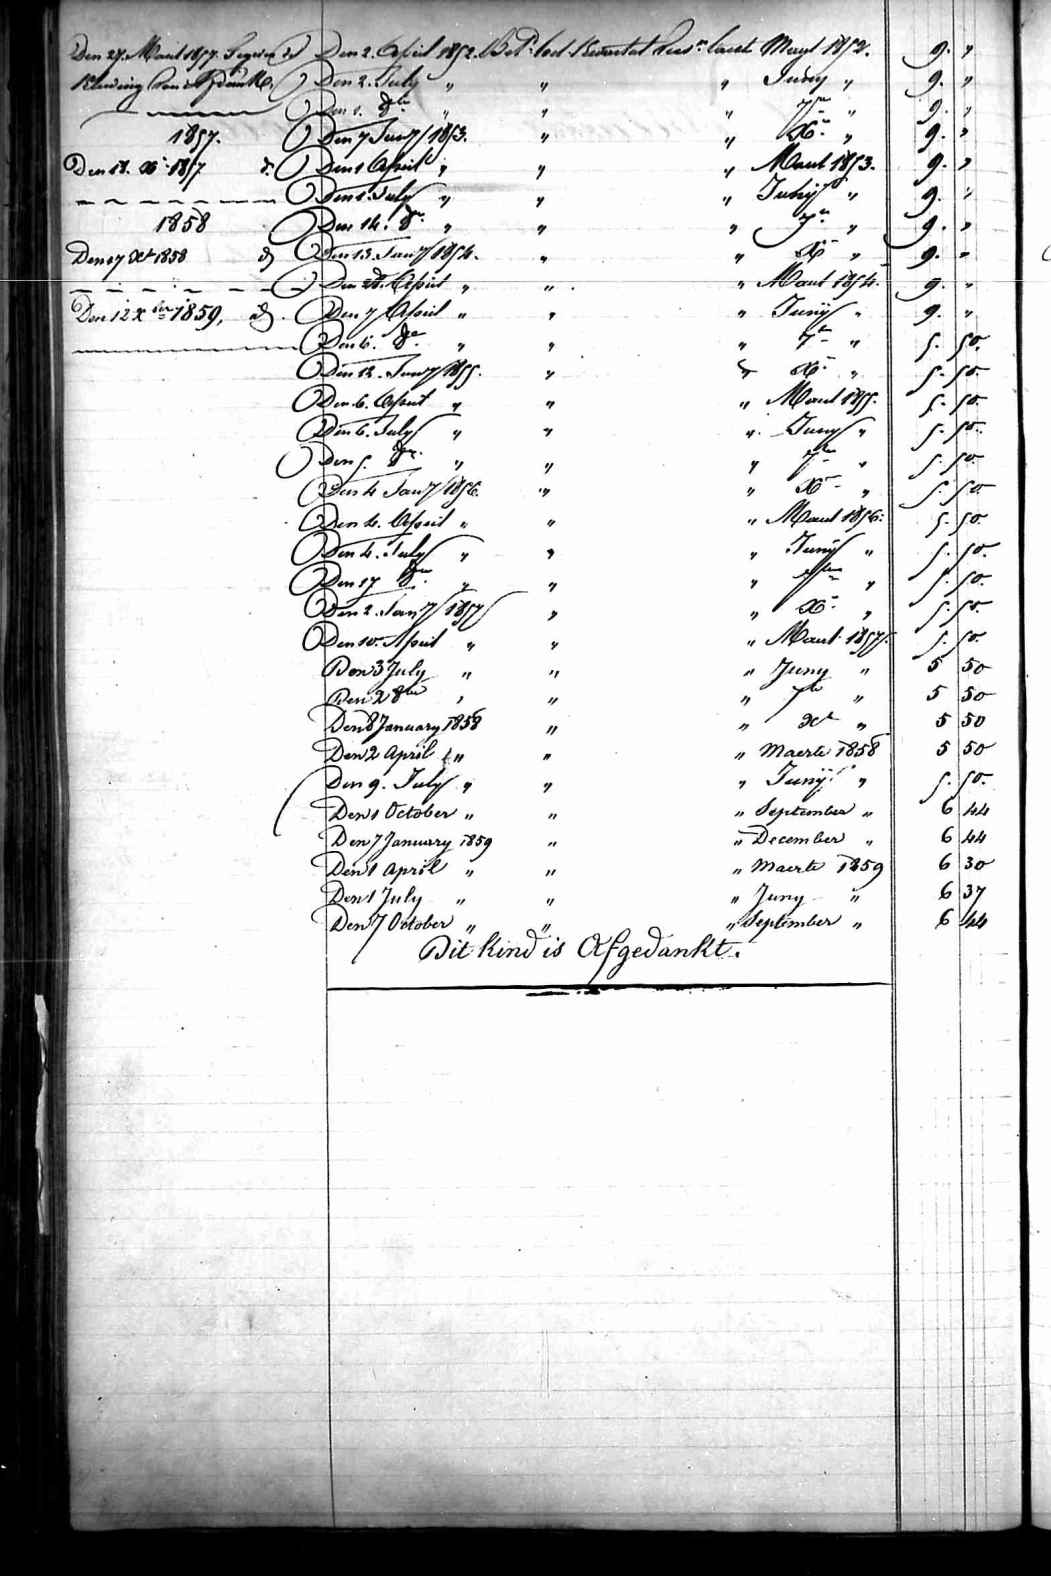 Den 27. Maart 1857. Den 2. April 1852. Bet. het Kwartal laest Maart 1852. 9. "
Kleeding van Den 2. July " " " Juny " 9. "
Den 1. 8br " " " 7br " 9. "
1857. Den 7 Jan'y 1853. " " Xr " 9. "
Den 18. Xr 1857 d. Den 1 April " " " Maart 1853. 9. "
Den 1. July " " " Junij " 9. "
1858 Den 14. 8r " " " 7r " 9. "
Den 17 Xr 1858 d Den 13. Jan'y 1854. " " Xr " 9. "
Den 28. April " " " Maart 1854. 9. "
Den 12 Xber 1859, d. Den 7 April " " " Junij " 9. "
Den 6. 8r " " " 7r " 5. 50.
Den 12. Jan'y 1855. " " Xr " 5. 50.
Den 6. April " " " Maart 1855. 5. 50.
Den 6. July " " " Juny " 5. 50.
Den 5. 8r " " " 7r " 5. 50.
Den 4 Jan'y 1856. " " Xr " 5. 50
Den 4. April " " " Maart 1856. 5. 50.
Den 4. July " " " Junij " 5. 50.
Den 17 8r " " " 7r " 5. 50.
Den 2. Jan'y 1857 " " Xr " 5. 50.
Den 10. April " " " Maart 1857. 5. 50.
Den 3 July " " " Juny " 5 50
Den 2 8bre " " " 7br " 5 50
Den 8 January 1858 " " Xr " 5 50
Den 2 April " " " Maerte 1858 5 50
Den 9. July " " " Junij " 5. 50.
Den 1 October " " " September " 6 44
Den 7 January 1859 " " December " 6 44
Den 1 April " " " Maerte 1859 6 30
Den 1 July " " " Juny " 6 37
Den 7 October " " " September " 6 44
Dit kind is Afgedankt.